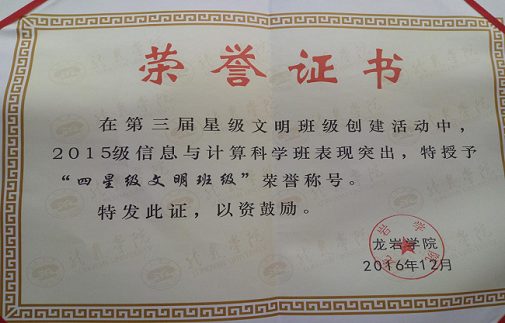 荣誉证书
在第三届星级文明班级创建活动中，
2015级信息与计算科学班表现突出，特授予
“四星级文明班级”荣誉称号。
特发此证，以资鼓励。
龙岩学院
2016年12月